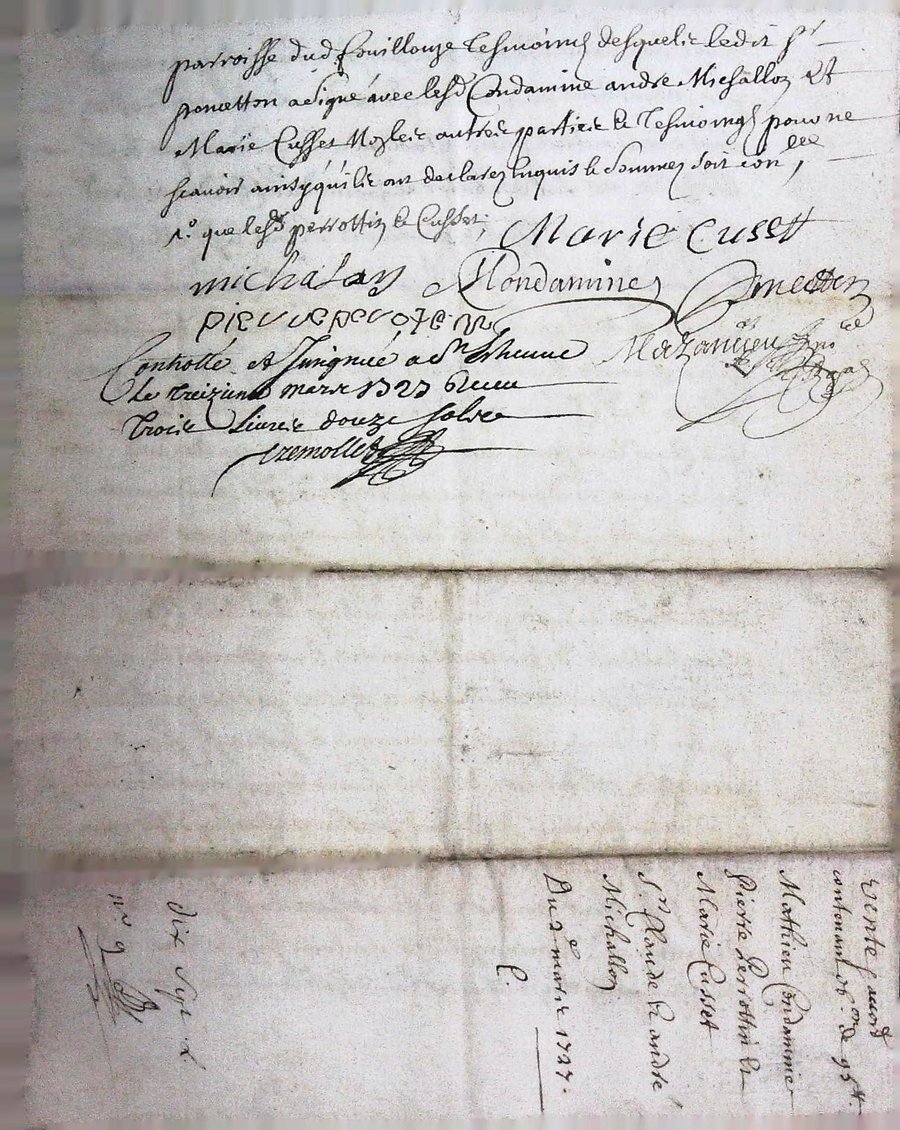 parroisse dud fouillouze tesmoings desquels ledit sr
poncetton a signé avec lesd Condamine andré Michallon Et
Marie Cusset Non les autres parties & tesmoings pour ne
scavoir ainsy quils ont declaré Enquis & sommés soit con lée
que lesd perrottin & Cusset
Marie Cusett
michalon Condamine
pierre perotein
Controllé Et Insignué a St Estienne
Le treizieme mars 1727 Receu
trois Livres douze sols
tremollet
vente
contenant de 95 lt
Mathieu Condamine
Pierre Perrottin &
Marie Cusset
Sr Claude & andré
Michallon
Du 2e mars 1727
C.
dix
no 9